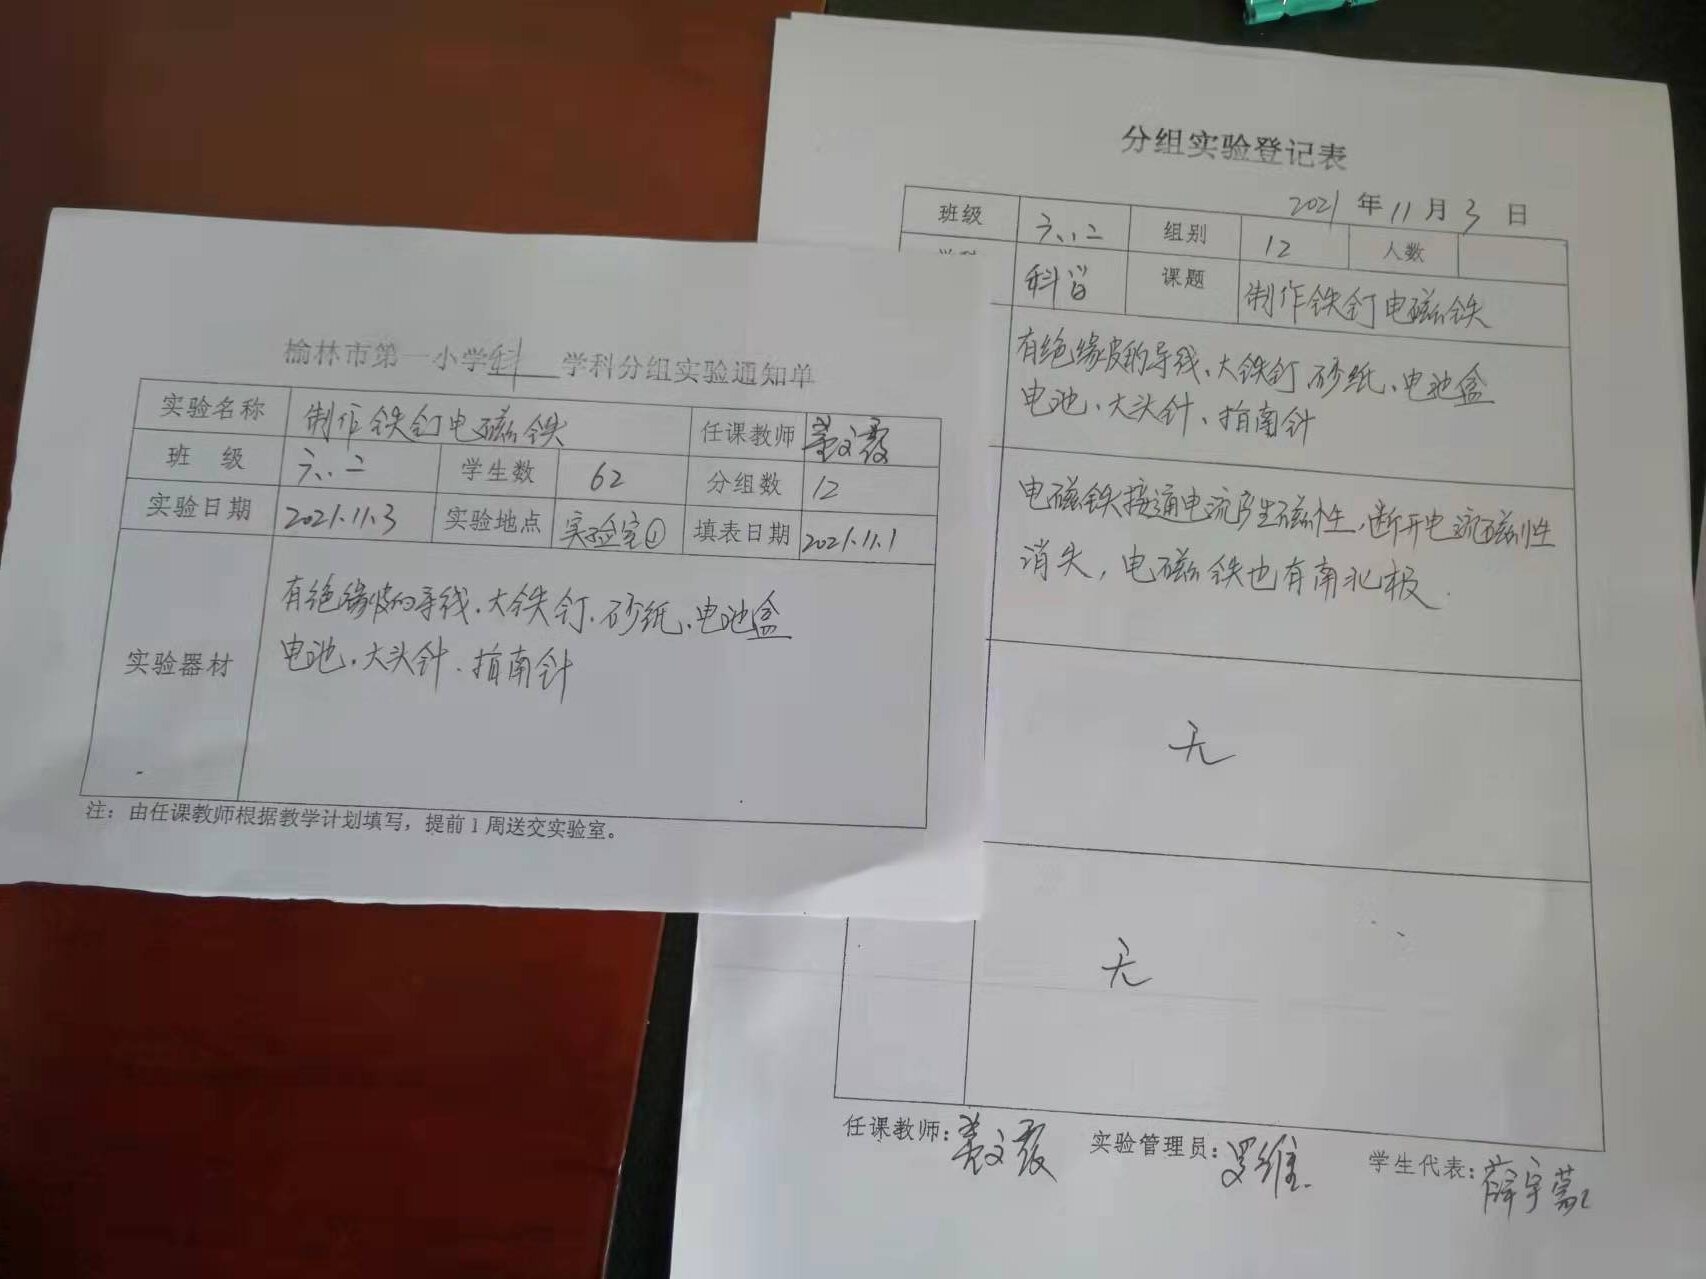 榆林市第一小学科 学科分组实验通知单
实验名称 制作铁钉电磁铁 任课教师
班 级 六.二 学生数 62 分组数 12
实验日期 2021.11.3 实验地点 实验室① 填表日期 2021.11.1
实验器材
有绝缘皮的导线、大铁钉、砂纸、电池盒
电池、大头针、指南针
注：由任课教师根据教学计划填写，提前1周送交实验室。
分组实验登记表
2021 年 11 月 3 日
班级 六.二 组别 12 人数
课题 制作铁钉电磁铁
有绝缘皮的导线、大铁钉 砂纸、电池盒
电池、大头针、指南针
电磁铁接通电流产生磁性,断开电流磁性
消失，电磁铁也有南北极.
无
无
任课教师: 实验管理员:罗维. 学生代表:薛宇